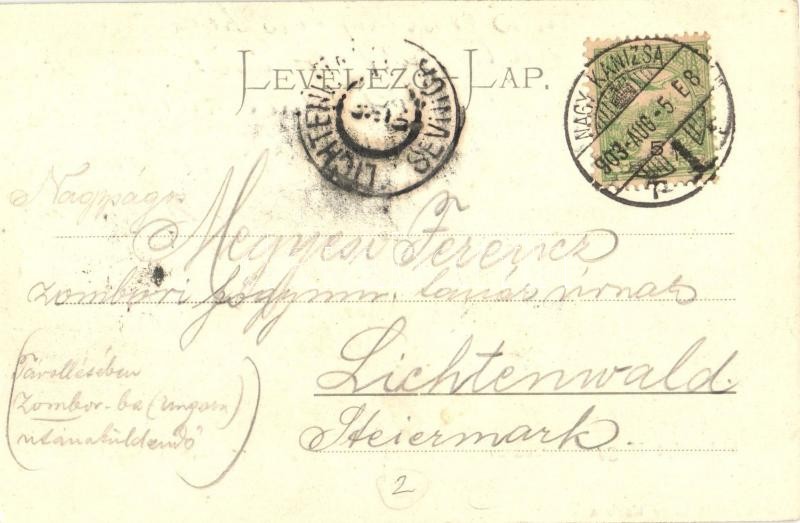 LEVELEZŐ-LAP.
LICHTENWALD
SEVNICA
NAGY-KANIZSA
903-AUG-5 E8
5
Nagyságos
Megyesi Ferencz
zombori főgymn. tanár úrnak
Lichtenwald
Steiermark.
(Távollésében
Zombor-ba (Ungarn)
utánaküldendő)
2